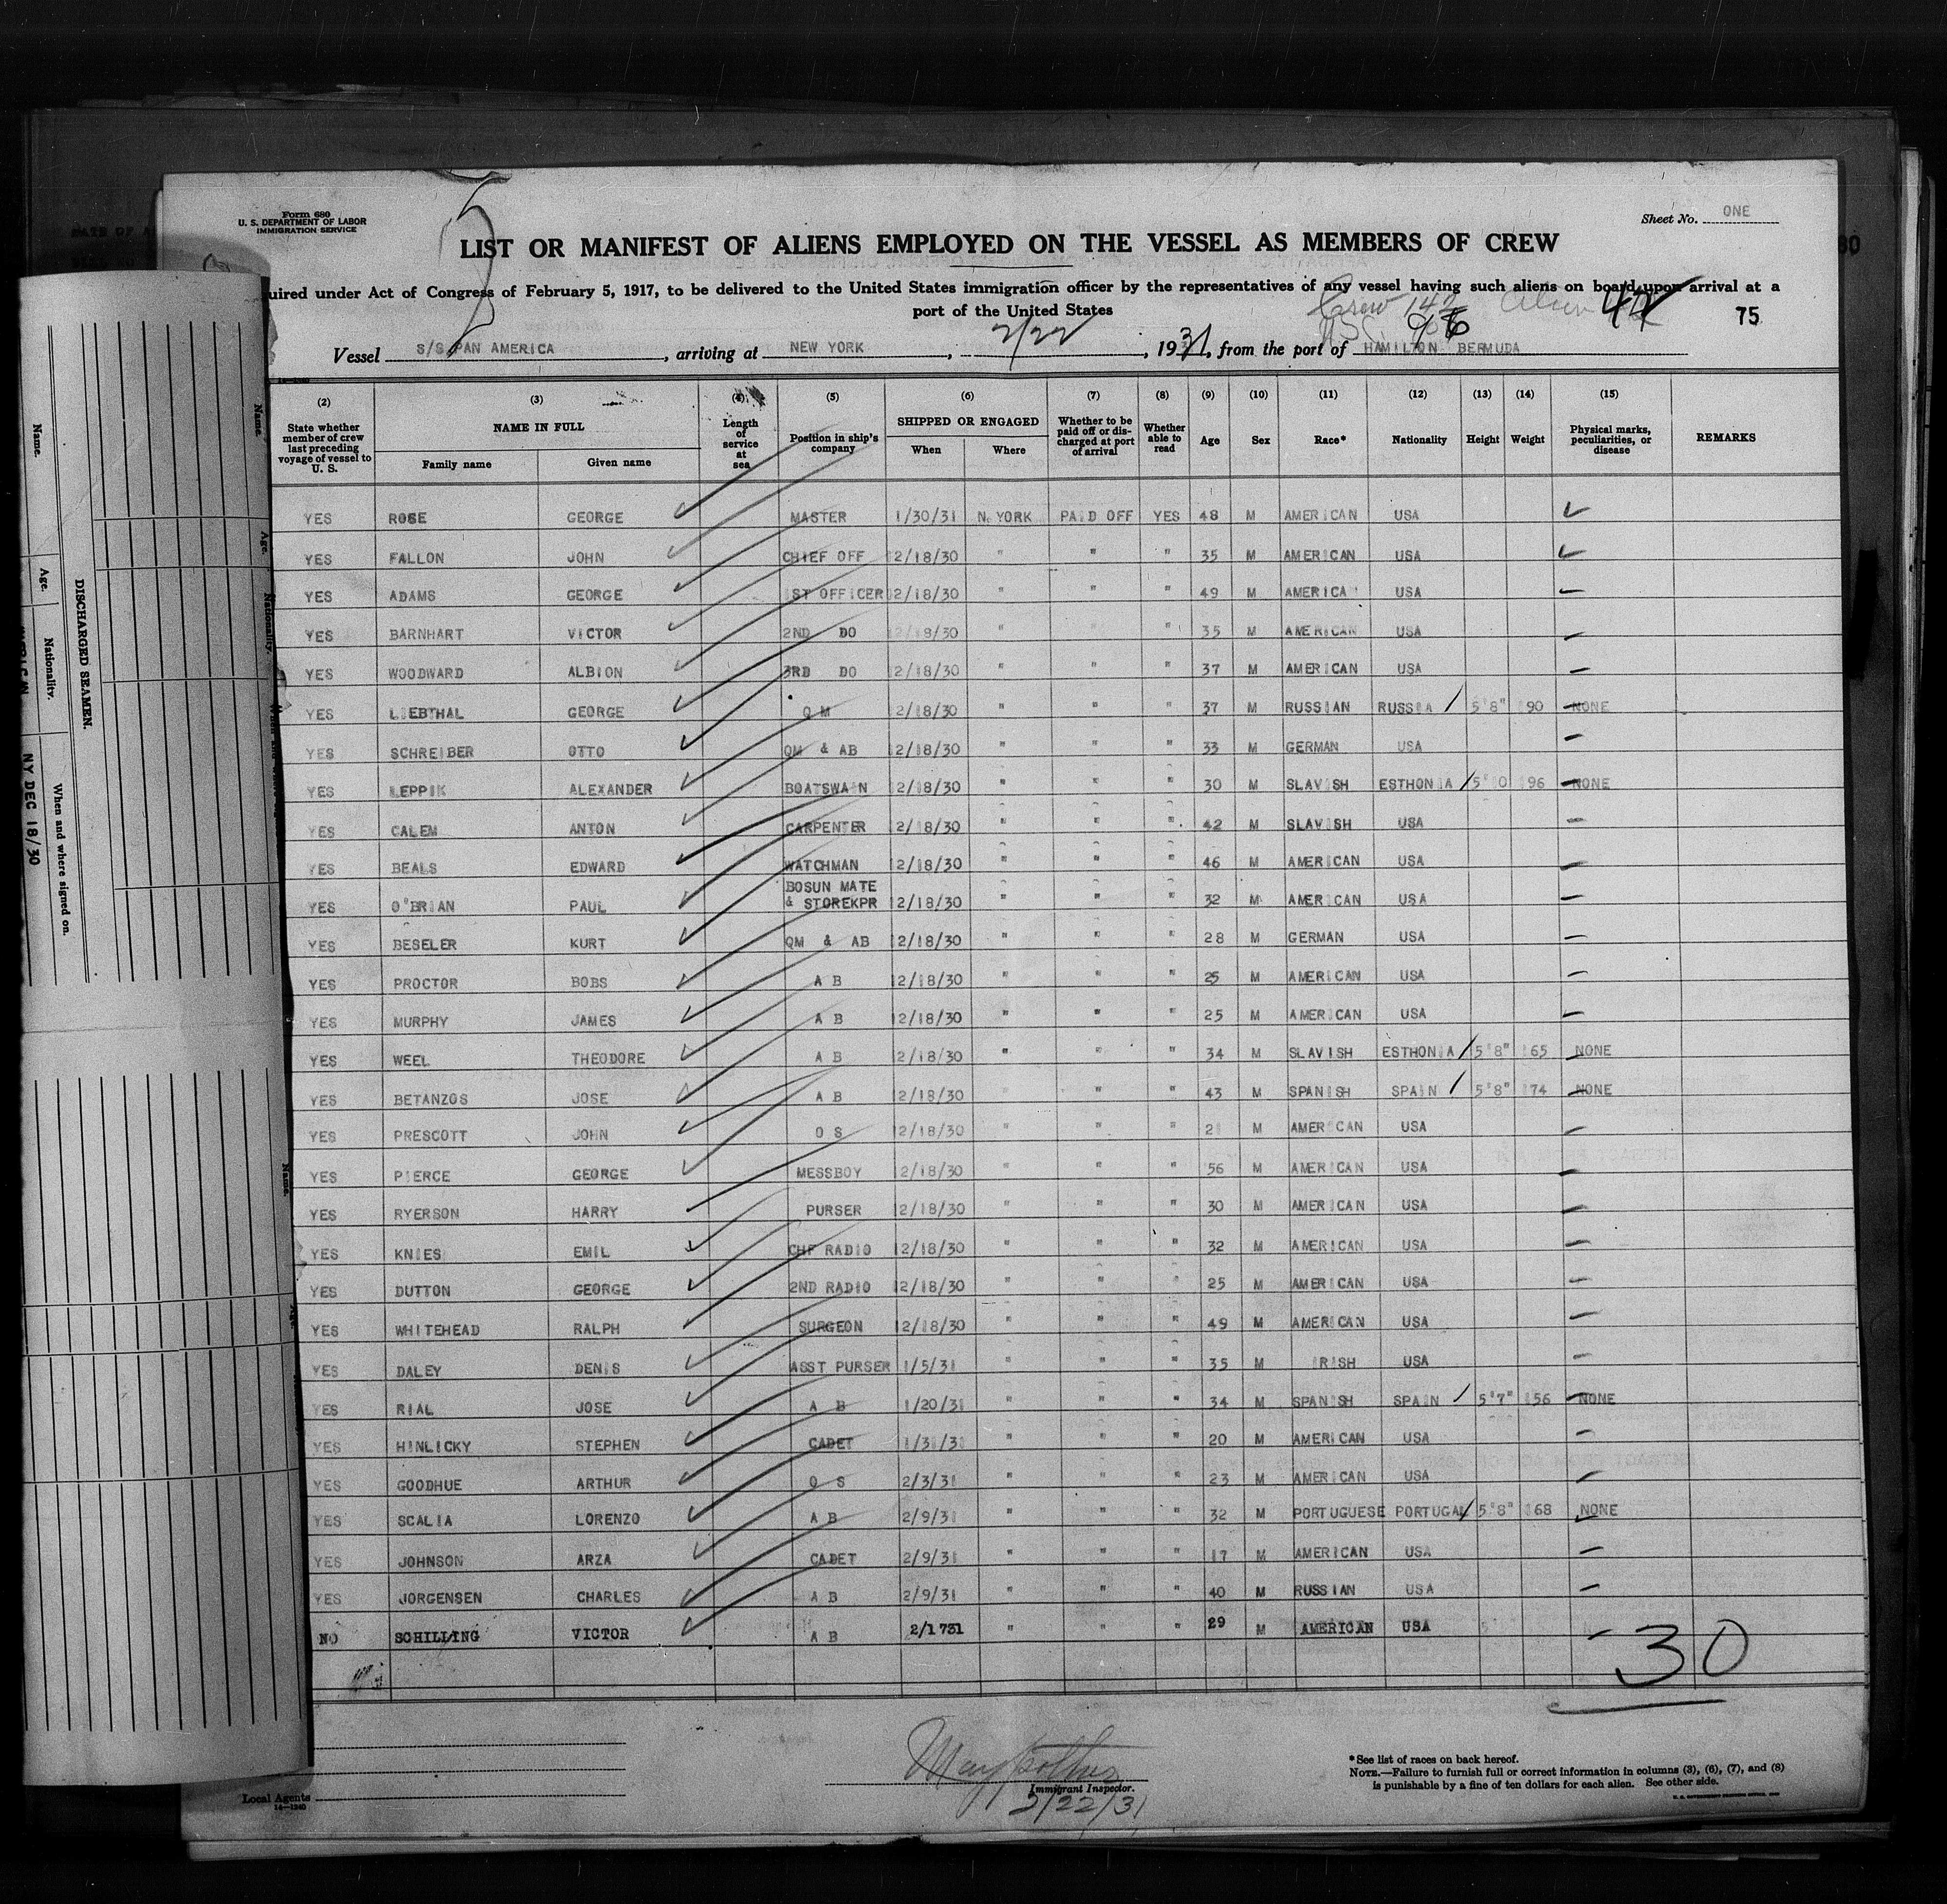 Form 680
U. S. DEPARTMENT OF LABOR
IMMIGRATION SERVICE
Sheet No. ONE
LIST OR MANIFEST OF ALIENS EMPLOYED ON THE VESSEL AS MEMBERS OF CREW
uired under Act of Congress of February 5, 1917, to be delivered to the United States immigration officer by the representatives of any vessel having such aliens on board upon arrival at a
port of the United States
Crew 142 Alien
75
Vessel S/S PAN AMERICA, arriving at NEW YORK, 2/22, 1931, from the port of HAMILTON BERMUDA
(2) (3) (4) (5) (6) (7) (8) (9) (10) (11) (12) (13) (14) (15)
State whether member of crew last preceding voyage of vessel to U. S. NAME IN FULL Family name Given name Length of service at sea Position in ship's company SHIPPED OR ENGAGED When Where Whether to be paid off or discharged at port of arrival Whether able to read Age Sex Race* Nationality Height Weight Physical marks, peculiarities, or disease REMARKS
YES ROSE GEORGE MASTER 1/30/31 N. YORK PAID OFF YES 48 M AMERICAN USA
YES FALLON JOHN CHIEF OFF 12/18/30 " " " 35 M AMERICAN USA
YES ADAMS GEORGE 1ST OFFICER 12/18/30 " " " 49 M AMERICA USA
YES BARNHART VICTOR 2ND DO 12/18/30 " " " 35 M AMERICAN USA
YES WOODWARD ALBION 3RD DO 12/18/30 " " " 37 M AMERICAN USA
YES LIEBTHAL GEORGE Q M 12/18/30 " " " 37 M RUSSIAN RUSSIA 5'8" 190 NONE
YES SCHREIBER OTTO QM & AB 12/18/30 " " " 33 M GERMAN USA
YES LEPPIK ALEXANDER BOATSWAIN 12/18/30 " " " 30 M SLAVISH ESTHONIA 196 NONE
YES CALEM ANTON CARPENTER 12/18/30 " " " 42 M SLAVISH USA
YES BEALS EDWARD WATCHMAN 12/18/30 " " " 46 M AMERICAN USA
YES O'BRIAN PAUL BOSUN MATE & STOREKPR 12/18/30 " " " 32 M AMERICAN USA
YES BESELER KURT QM & AB 12/18/30 " " " 28 M GERMAN USA
YES PROCTOR BOBS A B 12/18/30 " " " 25 M AMERICAN USA
YES MURPHY JAMES A B 12/18/30 " " " 25 M AMERICAN USA
YES WEEL THEODORE A B 12/18/30 " " " 34 M SLAVISH ESTHONIA 5'8" 165 NONE
YES BETANZOS JOSE A B 12/18/30 " " " 43 M SPANISH SPAIN 5'8" 174 NONE
YES PRESCOTT JOHN O S 12/18/30 " " " 21 M AMERICAN USA
YES PIERCE GEORGE MESSBOY 12/18/30 " " " 56 M AMERICAN USA
YES RYERSON HARRY PURSER 12/18/30 " " " 30 M AMERICAN USA
YES KNIES EMIL CHF RADIO 12/18/30 " " " 32 M AMERICAN USA
YES DUTTON GEORGE 2ND RADIO 12/18/30 " " " 25 M AMERICAN USA
YES WHITEHEAD RALPH SURGEON 12/18/30 " " " 49 M AMERICAN USA
YES DALEY DENIS ASST PURSER 1/5/31 " " " 35 M IRISH USA
YES RIAL JOSE A B 1/20/31 " " " 34 M SPANISH SPAIN 5'7" 156 NONE
YES HINLICKY STEPHEN CADET 1/31/31 " " " 20 M AMERICAN USA
YES GOODHUE ARTHUR O S 2/3/31 " " " 23 M AMERICAN USA
YES SCALIA LORENZO A B 2/9/31 " " " 32 M PORTUGUESE PORTUGAL 5'8" 168 NONE
YES JOHNSON ARZA CADET 2/9/31 " " " 17 M AMERICAN USA
YES JORGENSEN CHARLES A B 2/9/31 " " " 40 M RUSSIAN USA
NO SCHILLING VICTOR A B 2/1731 " " " 29 M AMERICAN USA
30
Immigrant Inspector.
2/22/31
*See list of races on back hereof.
NOTE.—Failure to furnish full or correct information in columns (3), (6), (7), and (8)
is punishable by a fine of ten dollars for each alien. See other side.
Local Agents
14—1240
Name. Age. Nationality. When and where signed on.
DISCHARGED SEAMEN.
NY DEC 18/30
Name. Age. Nationality.
Name.